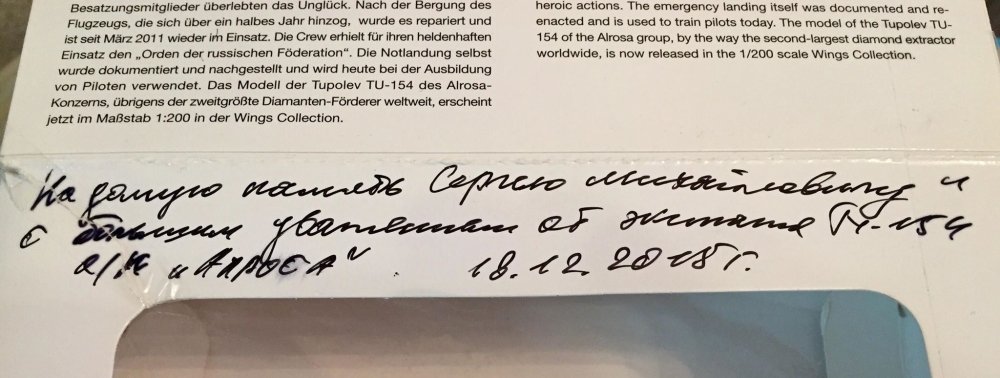 Besatzungsmitglieder überlebten das Unglück. Nach der Bergung des
Flugzeugs, die sich über ein halbes Jahr hinzog, wurde es repariert und
ist seit März 2011 wieder im Einsatz. Die Crew erhielt für ihren heldenhaften
Einsatz den „Orden der russischen Föderation“. Die Notlandung selbst
wurde dokumentiert und nachgestellt und wird heute bei der Ausbildung
von Piloten verwendet. Das Modell der Tupolev TU-154 des Alrosa-
Konzerns, übrigens der zweitgrößte Diamanten-Förderer weltweit, erscheint
jetzt im Maßstab 1:200 in der Wings Collection.
heroic actions. The emergency landing itself was documented and re-
enacted and is used to train pilots today. The model of the Tupolev TU-
154 of the Alrosa group, by the way the second-largest diamond extractor
worldwide, is now released in the 1/200 scale Wings Collection.
На добрую память Сергею Михайловичу
с большим уважением от экипажа Ту-154
а/к „АЛРОСА“ 18.12.2015г.